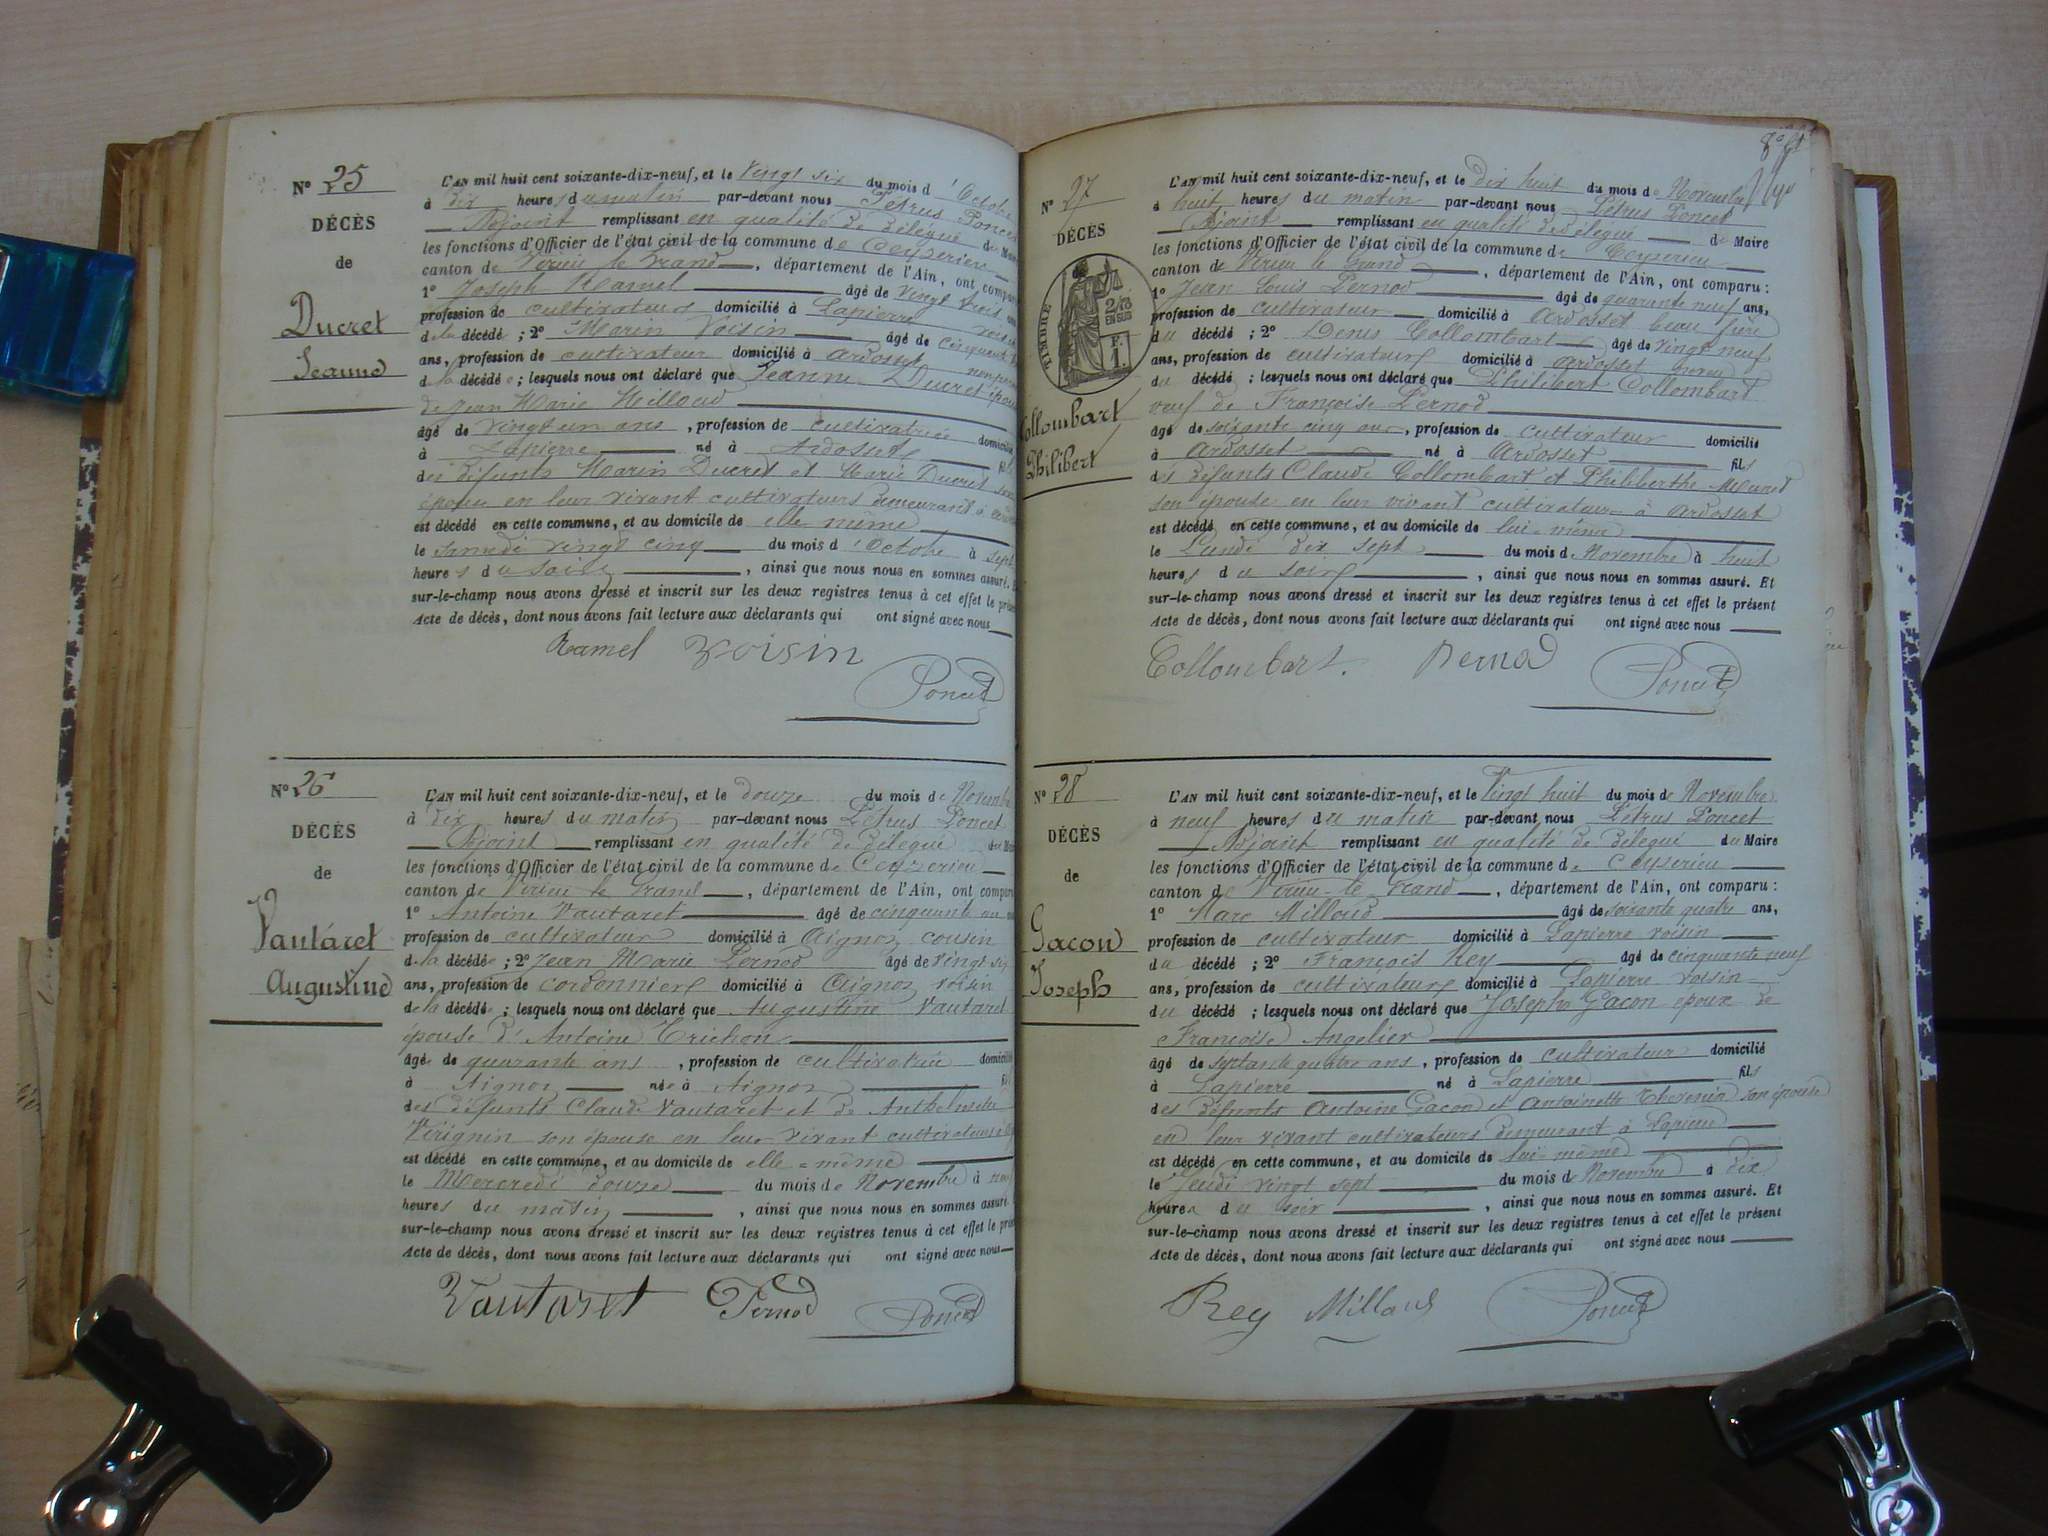 N° 25
DÉCÈS
de
Ducret
Jeanne
L'AN mil huit cent soixante-dix-neuf, et le Vingt six du mois d'Octobre
à dix heures du matin par-devant nous Pétrus Poncet
Adjoint remplissant en qualité de Délégué du
les fonctions d'Officier de l'état civil de la commune de Ceyzerieu
canton de Virieu le Grand, département de l'Ain, ont comparu
1° Joseph Ramel âgé de vingt trois
profession de cultivateur domicilié à Lapierre voisin
de la décédé; 2° Marin Voisin âgé de cinquante
ans, profession de cultivateur domicilié à Ardosset
de la décédée; lesquels nous ont déclaré que Jeanne Ducret épouse
de Jean Marie Milloud
âgé de vingt un ans, profession de cultivatrice domicilié
à Lapierre né à Ardosset fil
des défunts Marin Ducret et Marie Ducret son
épouse en leur vivant cultivateurs demeurant à
est décédé en cette commune, et au domicile de elle même
le samedi vingt cinq du mois d'Octobre à sept
heures du soir, ainsi que nous nous en sommes assuré.
sur-le-champ nous avons dressé et inscrit sur les deux registres tenus à cet effet le présent
Acte de décès, dont nous avons fait lecture aux déclarants qui ont signé avec nous
Ramel Voisin
Poncet
N° 26
DÉCÈS
de
Vautaret
Augustine
L'AN mil huit cent soixante-dix-neuf, et le douze du mois de Novembre
à dix heures du matin par-devant nous Pétrus Poncet
Adjoint remplissant en qualité de Délégué du
les fonctions d'Officier de l'état civil de la commune de Ceyzerieu
canton de Virieu le Grand, département de l'Ain, ont comparu
1° Antoine Vautaret âgé de cinquante un
profession de cultivateur domicilié à Aignoz cousin
de la décédée; 2° Jean Marie Pernod âgé de vingt six
ans, profession de cordonnier domicilié à Aignoz voisin
de la décédée; lesquels nous ont déclaré que Augustine Vautaret
épouse d'Antoine Trichon
âgé de quarante ans, profession de cultivatrice domicilié
à Aignoz née à Aignoz fil
des défunts Claude Vautaret et de Anthelmette
Virignin son épouse en leur vivant cultivateurs
est décédé en cette commune, et au domicile de elle=même
le Mercredi douze du mois de Novembre à neuf
heures du matin, ainsi que nous nous en sommes assuré.
sur-le-champ nous avons dressé et inscrit sur les deux registres tenus à cet effet le présent
Acte de décès, dont nous avons fait lecture aux déclarants qui ont signé avec nous
Vautaret Pernod Poncet
N° 27
DÉCÈS
TIMBRE
2/10
EN SUS
F.
1.
Collombart
Philibert
L'AN mil huit cent soixante-dix-neuf, et le dix huit du mois de Novembre
à huit heures du matin par-devant nous Pétrus Poncet
Adjoint remplissant en qualité de Délégué du Maire
les fonctions d'Officier de l'état civil de la commune de Ceyzerieu
canton de Virieu le Grand, département de l'Ain, ont comparu:
1° Jean Louis Pernod âgé de quarante neuf ans,
profession de cultivateur domicilié à Ardosset beau frère
du décédé; 2° Denis Collombart âgé de vingt neuf
ans, profession de cultivateur domicilié à Ardosset neveu
du décédé; lesquels nous ont déclaré que Philibert Collombart
veuf de Françoise Pernod
âgé de soixante cinq ans, profession de cultivateur domicilié
à Ardosset né à Ardosset fils
des défunts Claude Collombart et Philiberthe
son épouse en leur vivant cultivateurs à Ardosset
est décédé en cette commune, et au domicile de lui-même
le Lundi dix sept du mois de Novembre à huit
heures du soir, ainsi que nous nous en sommes assuré. Et
sur-le-champ nous avons dressé et inscrit sur les deux registres tenus à cet effet le présent
Acte de décès, dont nous avons fait lecture aux déclarants qui ont signé avec nous
Collombart. Pernod Poncet
N° 28
DÉCÈS
de
Gacon
Joseph
L'AN mil huit cent soixante-dix-neuf, et le Vingt huit du mois de Novembre
à neuf heures du matin par-devant nous Pétrus Poncet
Adjoint remplissant en qualité de Délégué du Maire
les fonctions d'Officier de l'état civil de la commune de Ceyzerieu
canton de Virieu-le Grand, département de l'Ain, ont comparu:
1° Marc Milloud âgé de soixante quatre ans,
profession de cultivateur domicilié à Lapierre voisin
du décédé; 2° François Rey âgé de cinquante neuf
ans, profession de cultivateur domicilié à Lapierre voisin
du décédé; lesquels nous ont déclaré que Joseph Gacon époux de
Françoise Angelier
âgé de septante quatre ans, profession de cultivateur domicilié
à Lapierre né à Lapierre fils
des défunts Antoine Gacon et Antoinette Thevenin son épouse
en leur vivant cultivateurs demeurant à Lapierre
est décédé en cette commune, et au domicile de lui-même
le Jeudi vingt sept du mois de Novembre à dix
heures du soir, ainsi que nous nous en sommes assuré. Et
sur-le-champ nous avons dressé et inscrit sur les deux registres tenus à cet effet le présent
Acte de décès, dont nous avons fait lecture aux déclarants qui ont signé avec nous
Rey Milloud Poncet